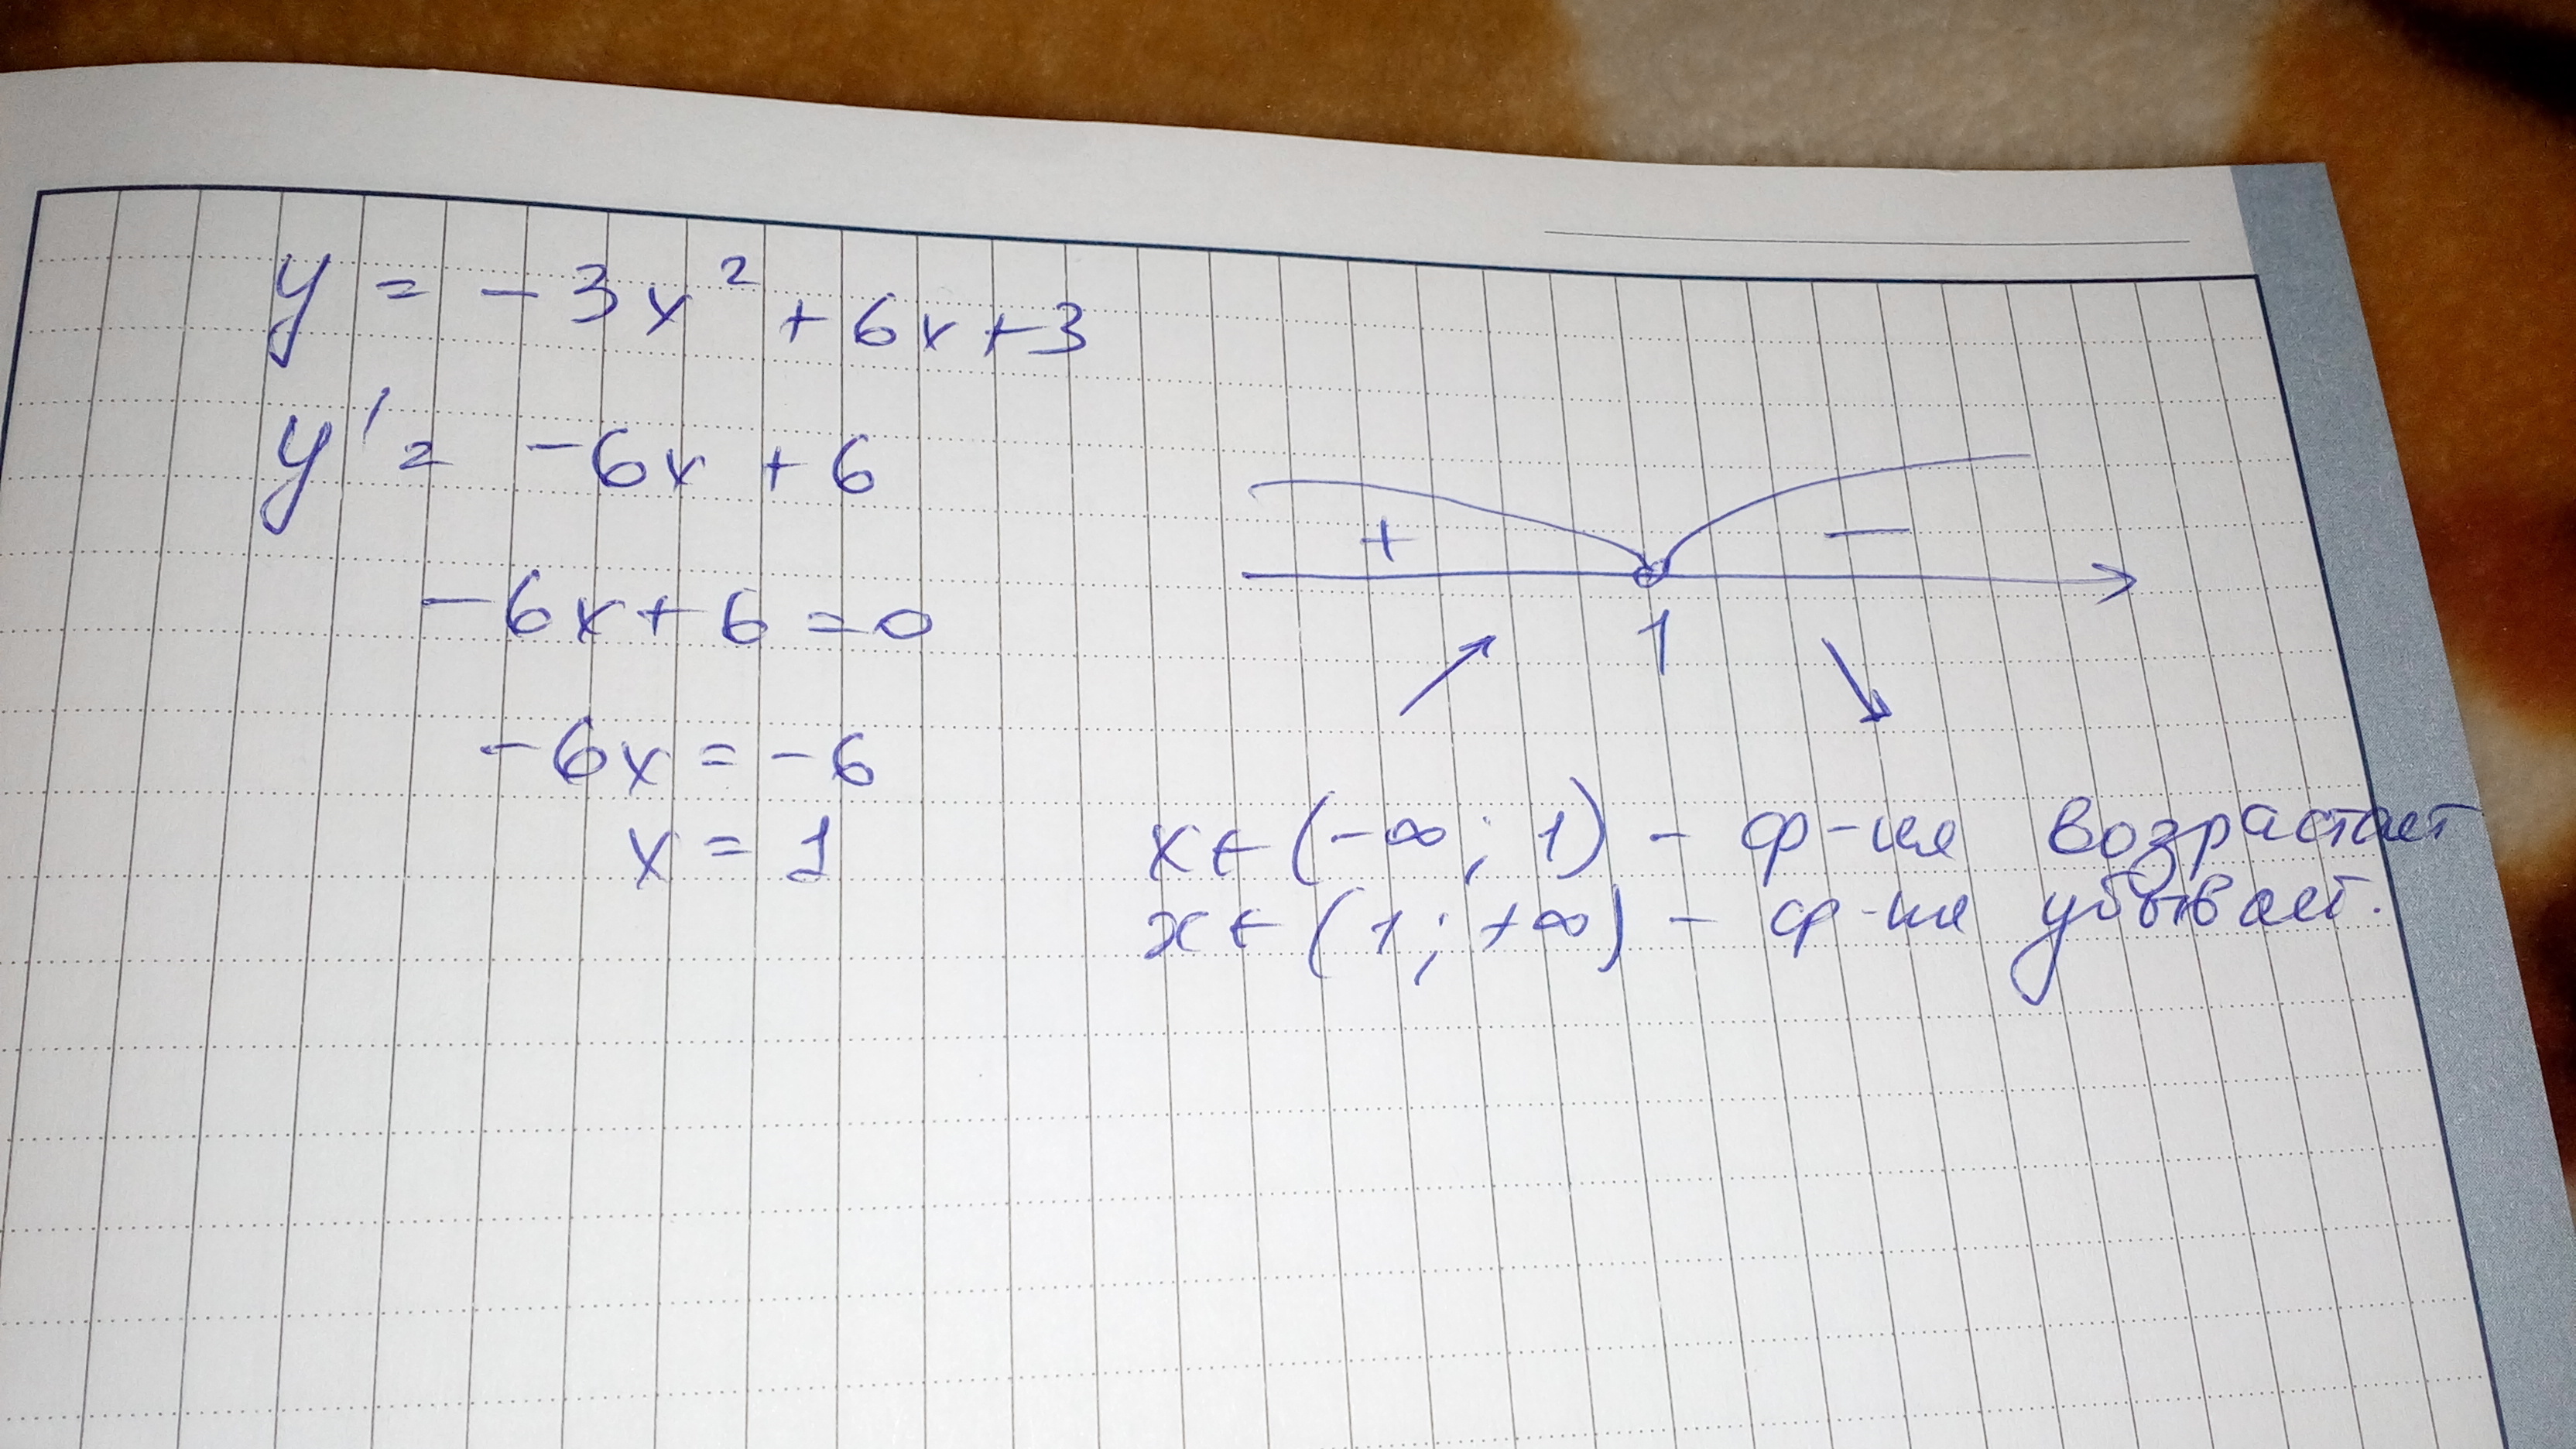 y = -3x² + 6x + 3
y' = -6x + 6
-6x + 6 = 0
-6x = -6
x = 1
+ −
1
x ∈ (-∞; 1) - ф-ия возрастает
x ∈ (1; +∞) - ф-ия убывает.